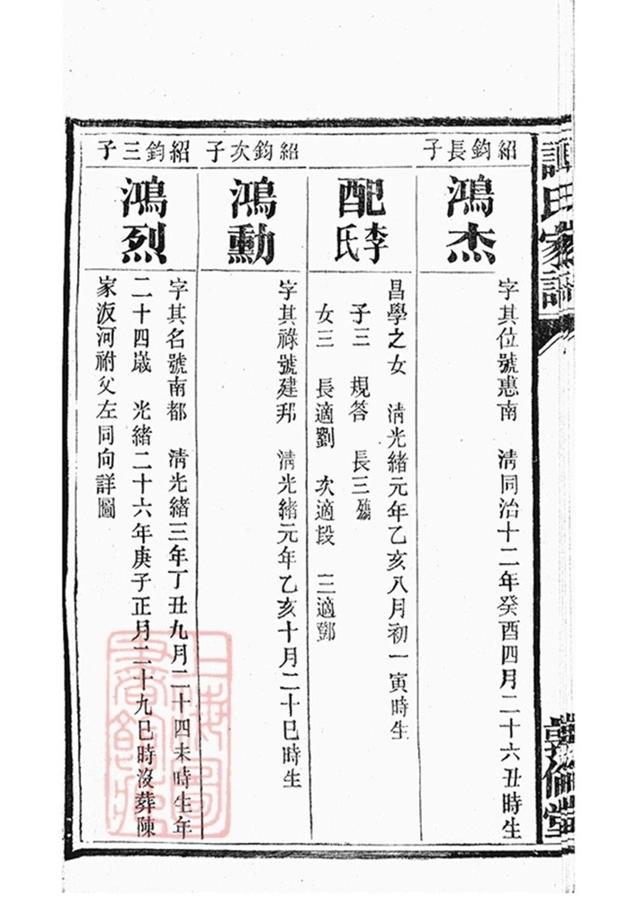 氏家譜
敦倫堂
紹鈞長子
鴻杰
字其位號惠南 清同治十二年癸酉四月二十六丑時生
配李氏
昌學之女 清光緒元年乙亥八月初一寅時生
子三 規答 長三殤
女三 長適劉 次適段 三適鄧
紹鈞次子
鴻勳
字其祿號建邦 清光緒元年乙亥十月二十巳時生
紹鈞三子
鴻烈
字其名號南都 清光緒三年丁丑九月二十四未時生年
二十四歲 光緒二十六年庚子正月二十九巳時沒葬陳
家坂河祔父左同向詳圖
上海圖書館藏